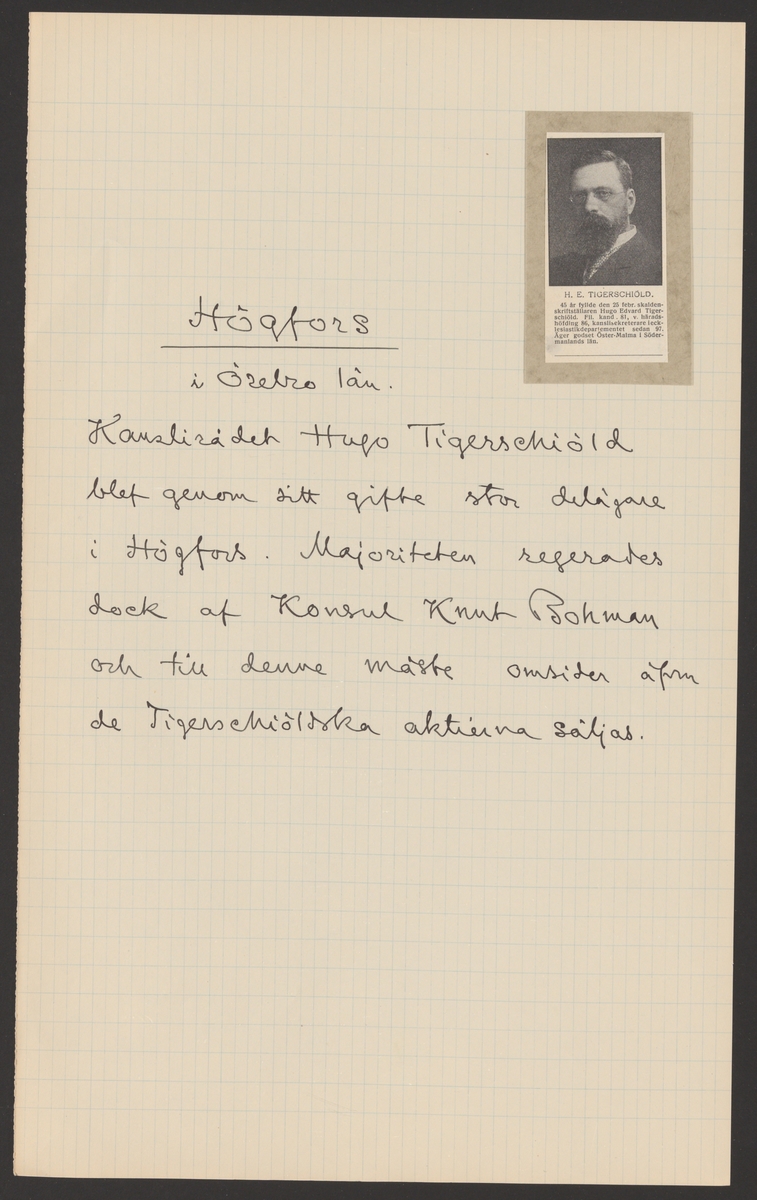 H. E. TIGERSCHIÖLD.
45 år fyllde den 25 febr. skalden-
skriftställaren Hugo Edvard Tiger-
schiöld. Fil. kand. 81, v. härads-
höfding 86, kanslisekreterare i eck-
lesiastikdepartementet sedan 97.
Äger godset Öster-Malma i Söder-
manlands län.
Högfors
i Örebro län.
Kanslirådet Hugo Tigerschiöld
blef genom sitt gifte stor delägare
i Högfors. Majoriteten regerades
dock af Konsul Knut Bohman
och till denne måste omsider äfven
de Tigerschiöldska aktierna säljas.